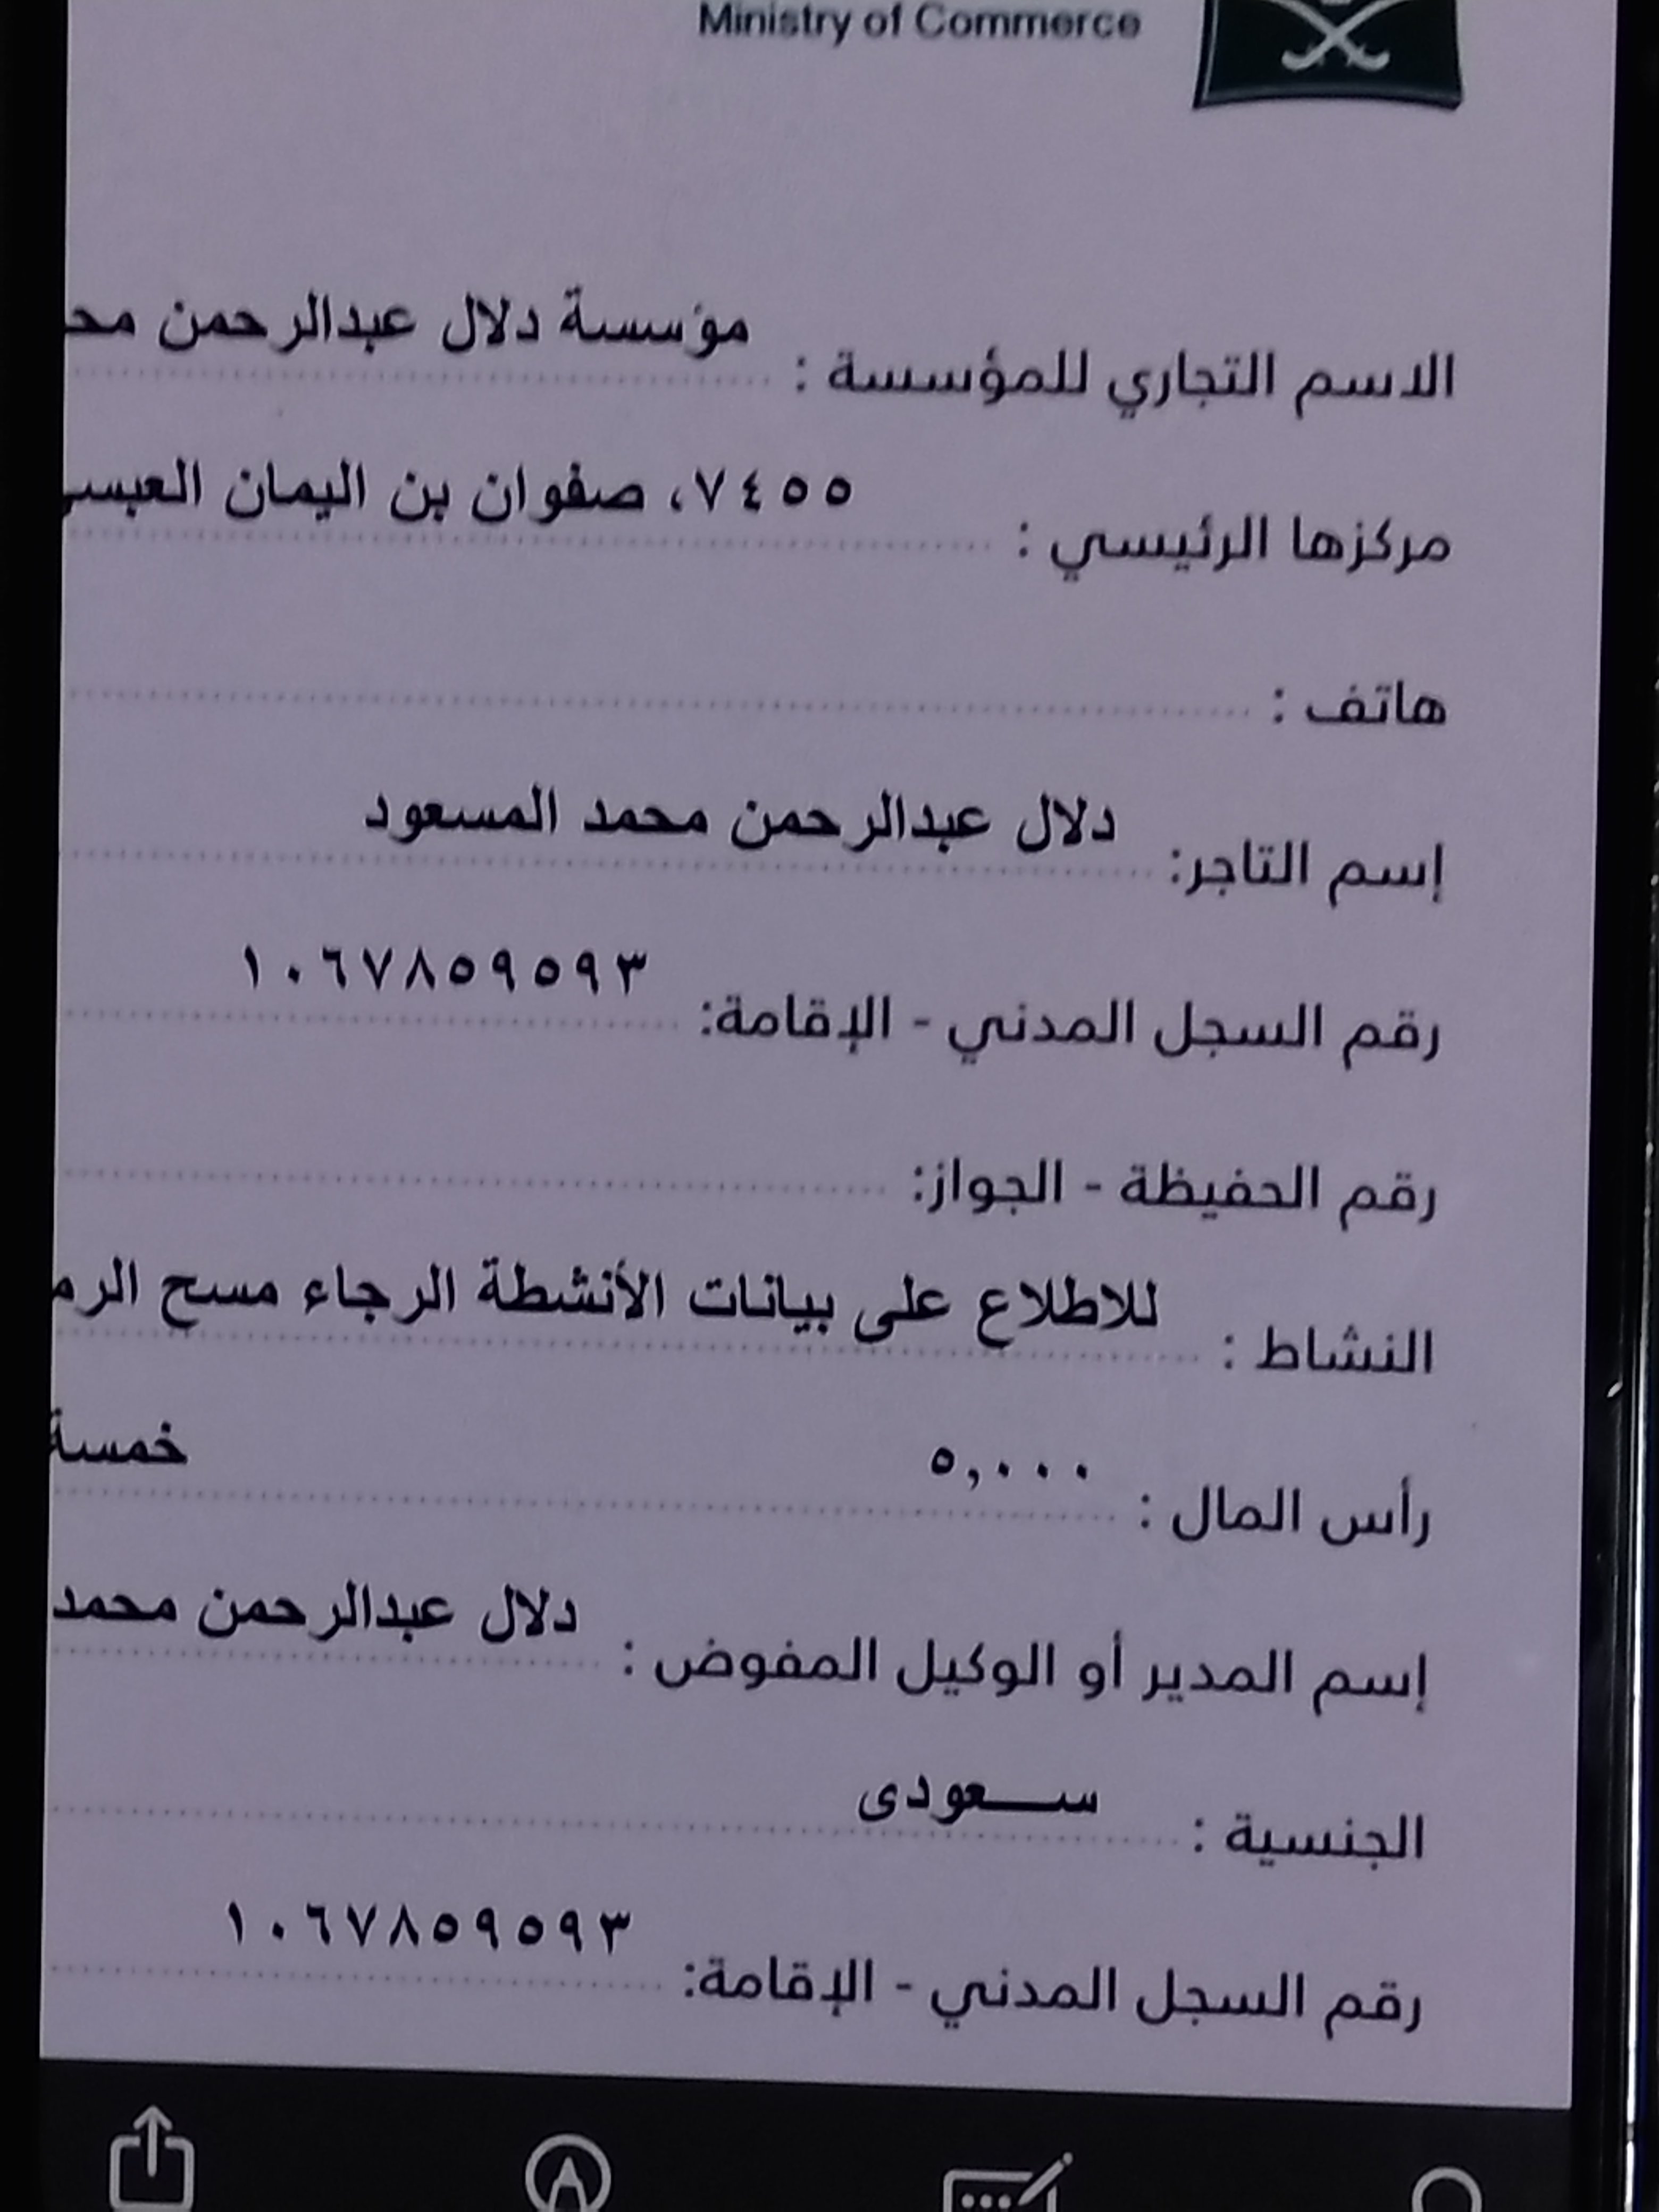 Ministry of Commerce
الاسم التجاري للمؤسسة : مؤسسة دلال عبدالرحمن
مركزها الرئيسي : ٧٤٥٥، صفوان بن اليمان
هاتف :
إسم التاجر: دلال عبدالرحمن محمد المسعود
رقم السجل المدني - الإقامة: ١٠٦٧٨٥٩٥٩٣
رقم الحفيظة - الجواز:
النشاط : للاطلاع على بيانات الأنشطة الرجاء مسح
رأس المال : ٥,٠٠٠ خمسة
إسم المدير أو الوكيل المفوض : دلال عبدالرحمن محمد
الجنسية : ســـعودى
رقم السجل المدني - الإقامة: ١٠٦٧٨٥٩٥٩٣